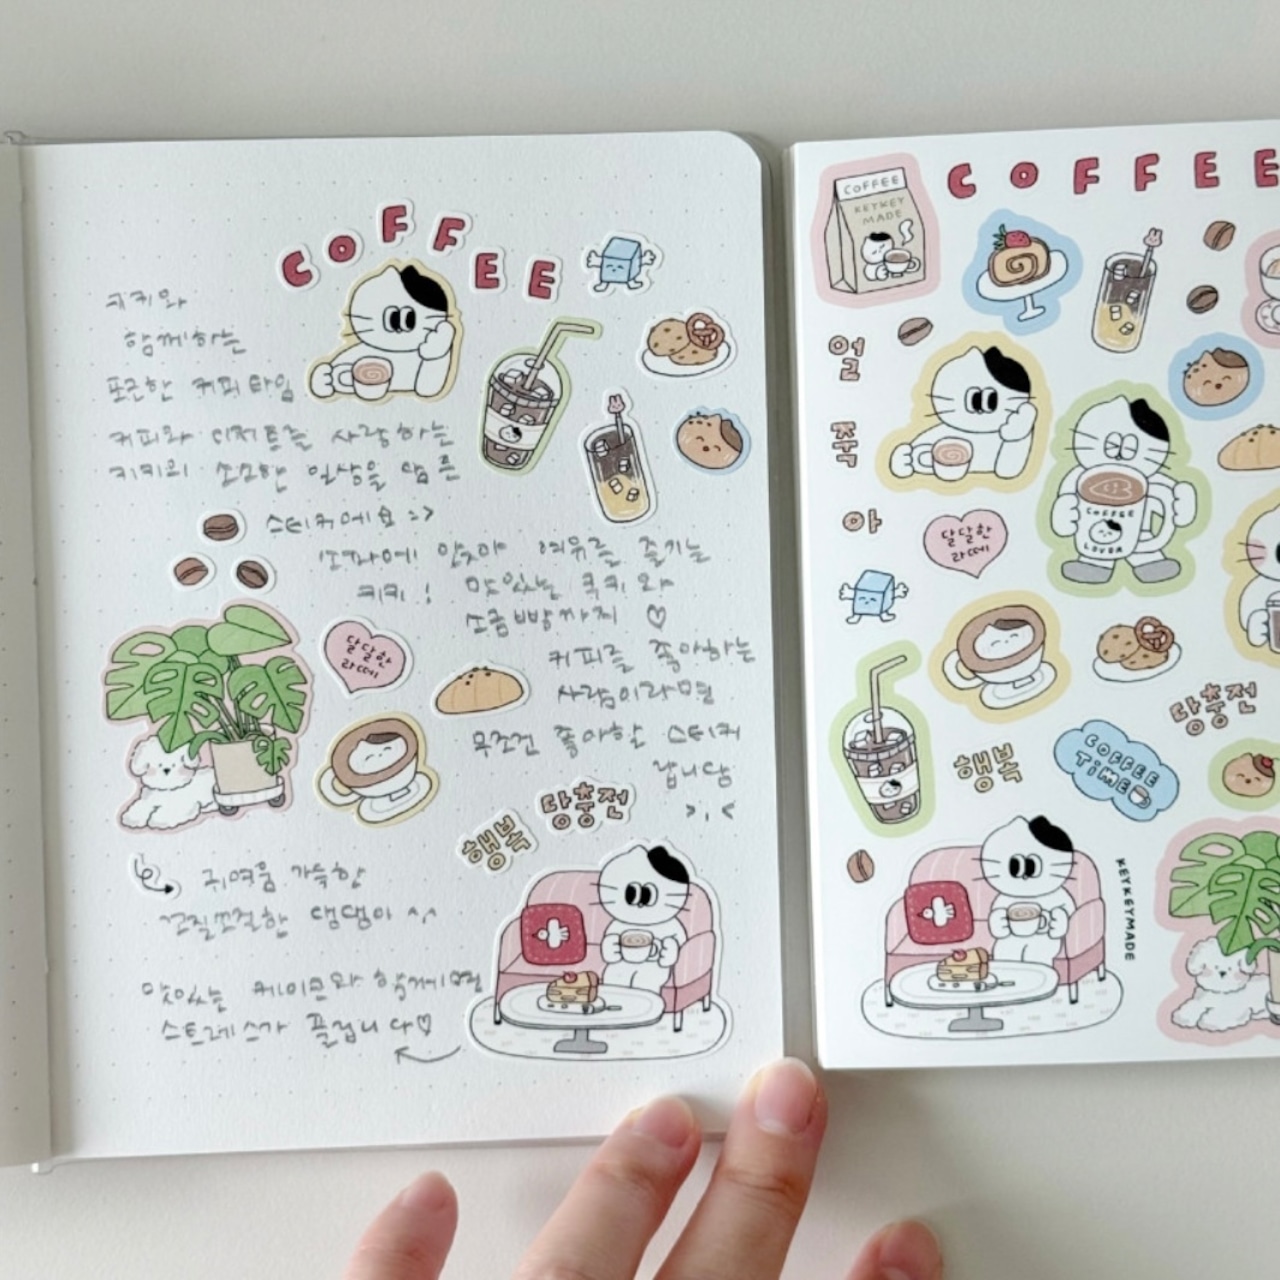 COFFEE
키키와
함께하는
포근한 커피타임
커피와 디저트를 사랑하는
키키의 소소한 일상을 담은
스티커에요 :>
소파에 앉아 여유를 즐기는
키키! 맛있는 쿠키와
소금빵까지 ♡
커피를 좋아하는
사람이라면
무조건 좋아할 스티커
랍니당
>.<
달달한
라떼
행복
당충전
귀여움 가득한
꼬질꼬질한 댕댕이 ^^
맛있는 케이크와 함께면
스트레스가 풀립니다♡
COFFEE
KEYKEY
MADE
COFFEE
얼
죽
아
COFFEE
LOVER
달달한
라떼
당충전
행복
COFFEE
TIME
KEYKEYMADE